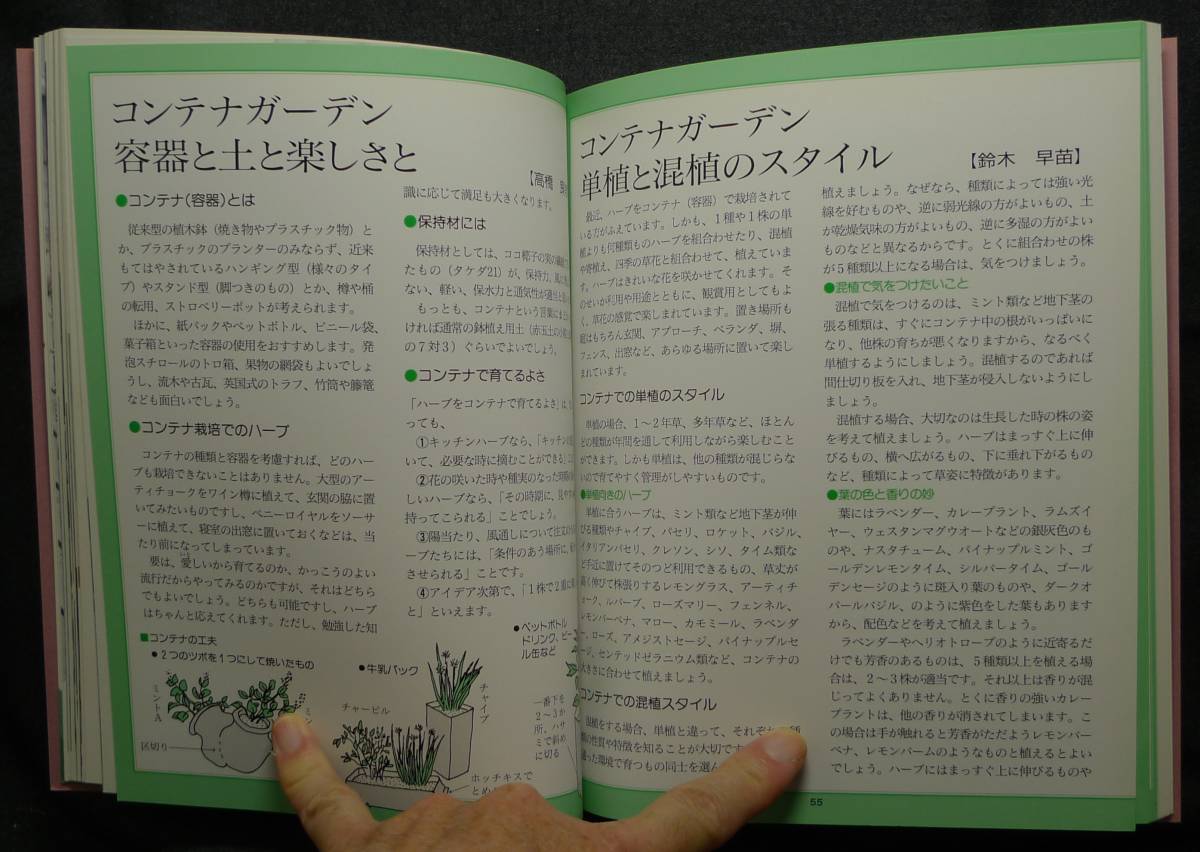 コンテナガーデン
容器と土と楽しさと
【高橋
●コンテナ(容器)とは
従来型の植木鉢(焼き物やプラスチック物)と
か、プラスチックのプランターのみならず、近来
もてはやされているハンギング型(様々のタイ
プ)やスタンド型(脚つきのもの)とか、樽や桶
の転用、ストロベリーポットが考えられます。
ほかに、紙パックやペットボトル、ビニール袋、
菓子箱といった容器の使用をおすすめします。発
泡スチロールのトロ箱、果物の網袋もよいでしょ
うし、流木や古瓦、英国式のトラフ、竹筒や籐篭
なども面白いでしょう。
●コンテナ栽培でのハーブ
コンテナの種類と容器を考慮すれば、どのハー
ブも栽培できないことはありません。大型のアー
ティチョークをワイン樽に植えて、玄関の脇に置
いてみたいものですし、ペニーロイヤルをソーサ
ーに植えて、寝室の出窓に置いておくなどは、当
たり前になってしまっています。
要は、愛しいから育てるのか、かっこうのよい
流行だからやってみるのかですが、それはどちら
でもよいでしょう。どちらも可能ですし、ハーブ
はちゃんと応えてくれます。ただし、勉強した知
識に応じて満足も大きくなります。
●保持材には
保持材としては、ココ椰子の実の繊維
たもの(タケダ21)が、保持力、
ない、軽い、保水力と通気性が適当と
もっとも、コンテナという言葉に
ければ通常の鉢植え用土(赤玉土の小
の7対3)ぐらいでよいでしょう。
●コンテナで育てるよさ
「ハーブをコンテナで育てるよさ」は、
っても、
①キッチンハーブなら、「キッチンの
いて、必要な時に摘むことができる」
②花の咲いた時や種実のなった時期の
しいハーブなら、「その時期に、見や
持ってこられる」ことでしょう。
③陽当たり、風通しについて注文の
ーブたちには、「条件のあう場所に、
させられる」ことです。
④アイデア次第で、「1株で2重に
と」といえます。
■コンテナの工夫
●2つのツボを1つにして焼いたもの
ミントA
ミン
区切り
●牛乳パック
チャービル
チャイブ
ホッチキスで
とめ
●ペットボトル
ドリンク、ビー
ル缶など
一番下を
2〜3か
所、ハサ
ミで斜め
に切る
コンテナガーデン
単植と混植のスタイル
【鈴木 早苗】
最近、ハーブをコンテナ(容器)で栽培されて
いる方がふえています。しかも、1種や1株の単
植よりも何種類ものハーブを組合わせたり、混植
や寄植え、四季の草花と組合わせて、植えていま
す。ハーブはきれいな花を咲かせてくれます。そ
のせいか利用や用途とともに、観賞用としてもよ
く、草花の感覚で楽しまれています。置き場所も
庭はもちろん玄関、アプローチ、ベランダ、塀、
フェンス、出窓など、あらゆる場所に置いて楽し
まれています。
コンテナでの単植のスタイル
単植の場合、1〜2年草、多年草など、ほとん
どの種類が年間を通して利用しながら楽しむこと
ができます。しかも単植は、他の種類が混じらな
いので育てやすく管理がしやすいものです。
●単植向きのハーブ
単植に合うハーブは、ミント類など地下茎が伸
びる種類やチャイブ、パセリ、ロケット、バジル、
イタリアンパセリ、クレソン、シソ、タイム類な
ど手近に置けてそのつど利用できるもの、草丈が
高く伸びて株張りするレモングラス、アーティチ
ョーク、ルバーブ、ローズマリー、フェンネル、
レモンバーベナ、マロー、カモミール、ラベンダ
ー、ローズ、アメジストセージ、パイナップルセ
ージ、センテッドゼラニウム類など、コンテナの
大きさに合わせて植えましょう。
コンテナでの混植スタイル
混植をする場合、単植と違って、それぞれの種
類の性質や特徴を知ることが大切です
った環境で育つもの同士を選ん
植えましょう。なぜなら、種類によっては強い光
線を好むものや、逆に弱光線の方がよいもの、土
が乾燥気味の方がよいもの、逆に多湿の方がよい
ものなどと異なるからです。とくに組合わせの株
が5種類以上になる場合は、気をつけましょう。
●混植で気をつけたいこと
混植で気をつけるのは、ミント類など地下茎の
張る種類は、すぐにコンテナ中の根がいっぱいに
なり、他株の育ちが悪くなりますから、なるべく
単植するようにしましょう。混植するのであれば
間仕切り板を入れ、地下茎が侵入しないようにし
ましょう。
混植する場合、大切なのは生長した時の株の姿
を考えて植えましょう。ハーブはまっすぐ上に伸
びるもの、横へ広がるもの、下に垂れ下がるもの
など、種類によって草姿に特徴があります。
●葉の色と香りの妙
葉にはラベンダー、カレープラント、ラムズイ
ヤー、ウェスタンマグウオートなどの銀灰色のも
のや、ナスタチューム、パイナップルミント、ゴ
ールデンレモンタイム、シルバータイム、ゴール
デンセージのように斑入り葉のものや、ダークオ
パールバジル、のように紫色をした葉もあります
から、配色などを考えて植えましょう。
ラベンダーやヘリオトロープのように近寄るだ
けでも芳香のあるものは、5種類以上を植える場
合は、2〜3株が適当です。それ以上は香りが混
じってよくありません。とくに香りの強いカレー
プラントは、他の香りが消されてしまいます。こ
の場合は手が触れると芳香がただようレモンバー
ベナ、レモンバームのようなものと植えるとよい
でしょう。ハーブにはまっすぐ上に伸びるものや
55